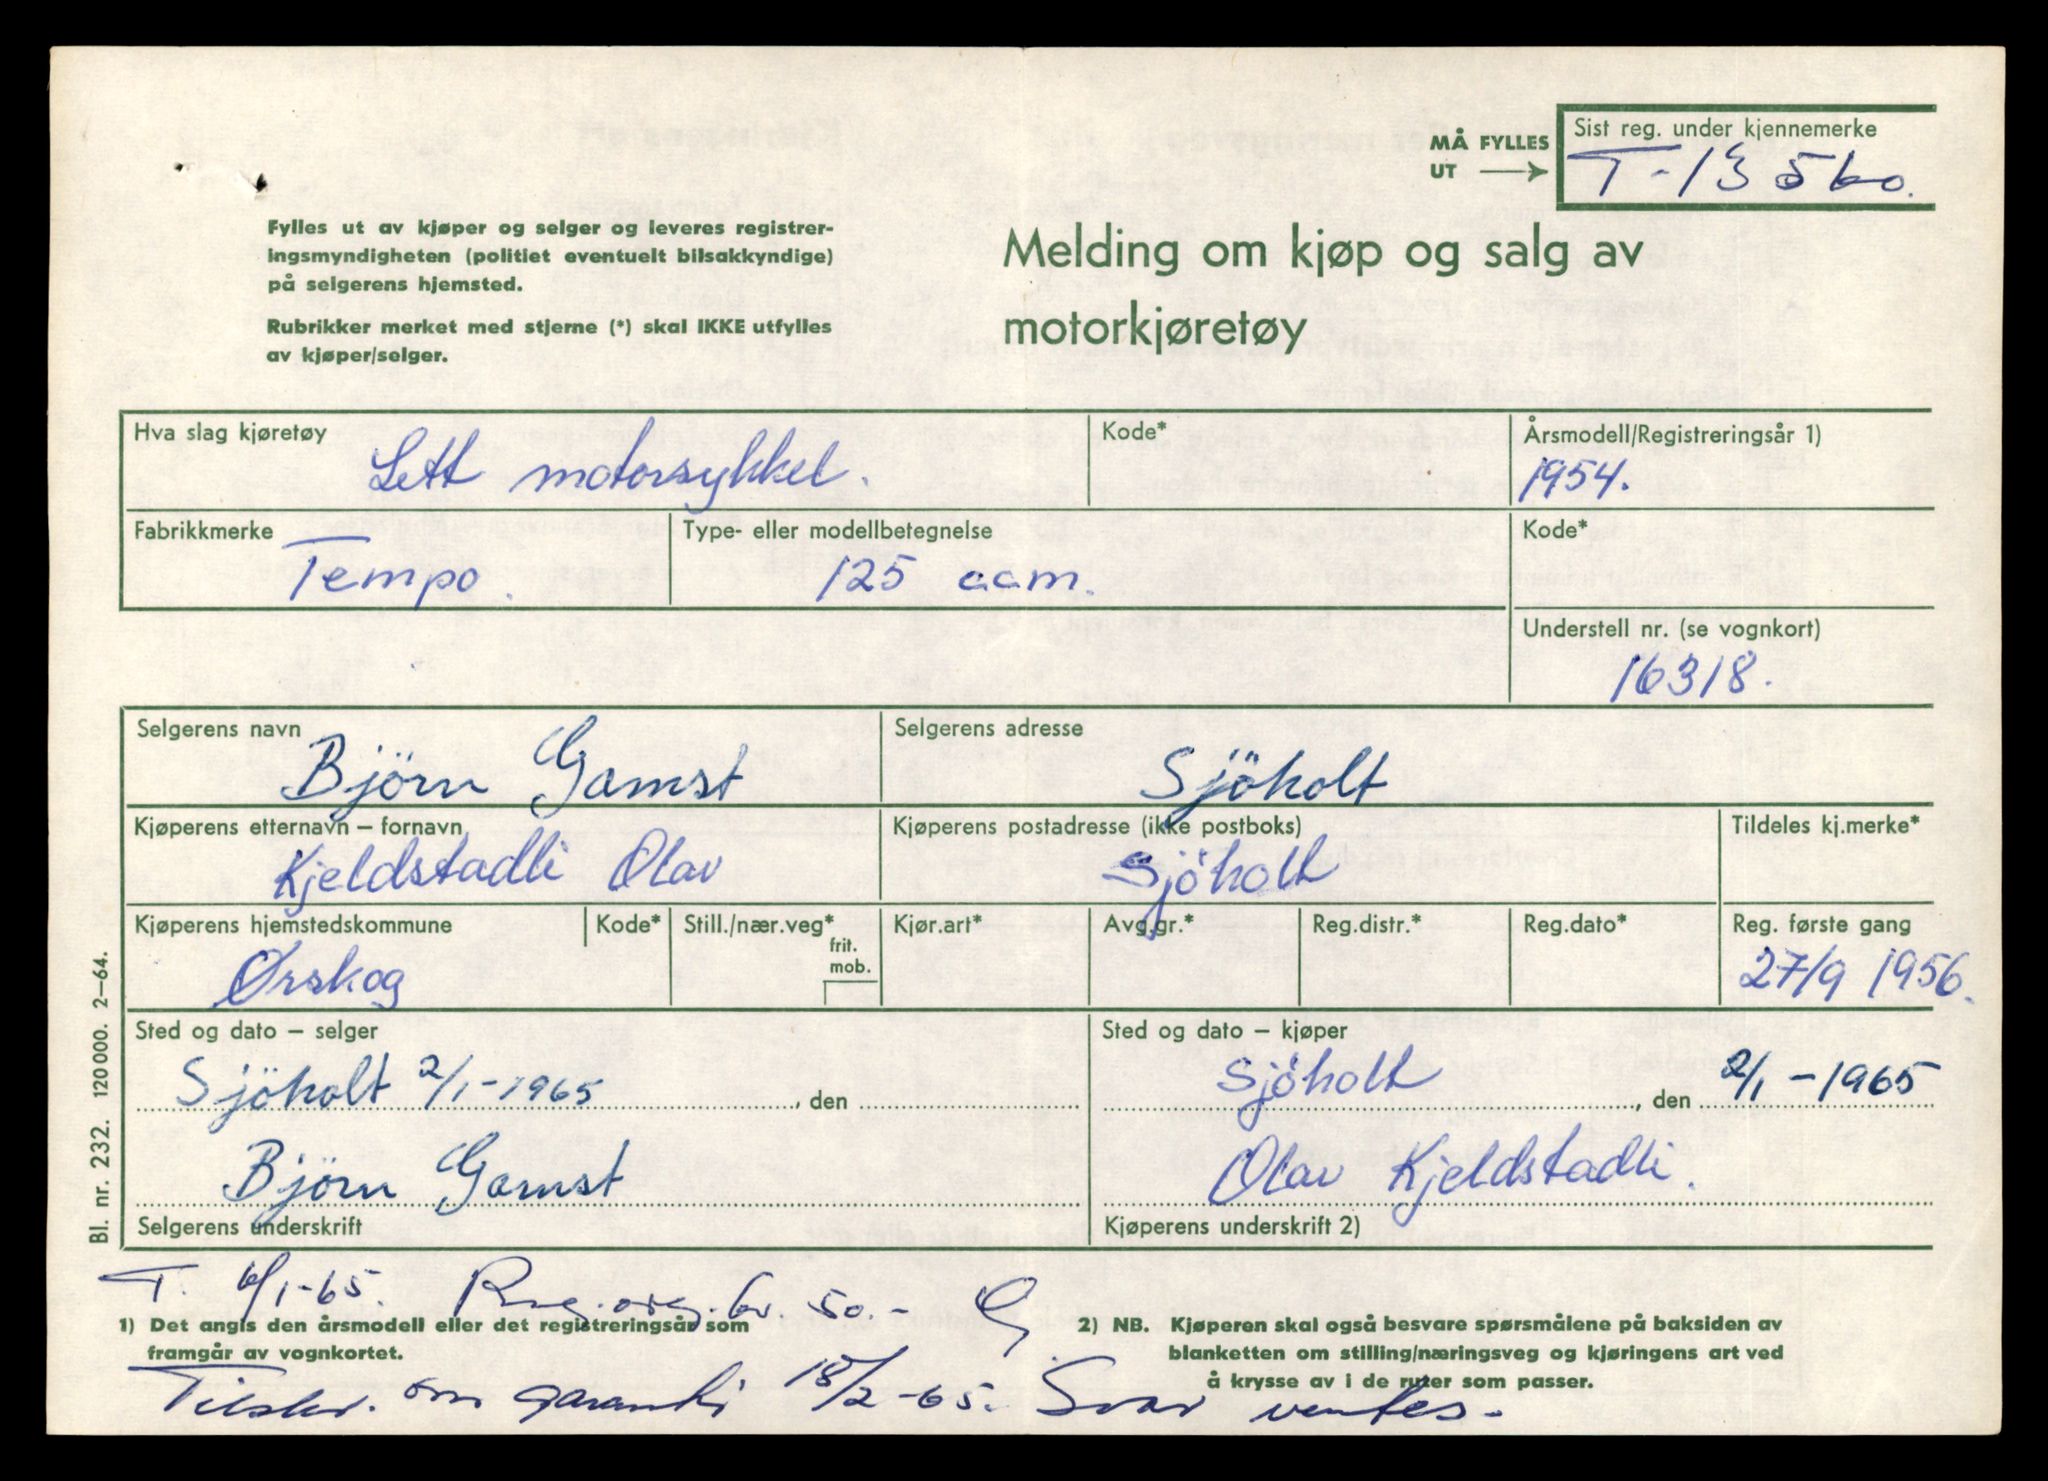 MÅ FYLLES UT
Sist reg. under kjennemerke
T-13560.
Fylles ut av kjøper og selger og leveres registrer-
ingsmyndigheten (politiet eventuelt bilsakkyndige)
på selgerens hjemsted.
Rubrikker merket med stjerne (*) skal IKKE utfylles
av kjøper/selger.
Melding om kjøp og salg av
motorkjøretøy
Hva slag kjøretøy
Lett motorsykkel.
Kode*
Årsmodell/Registreringsår 1)
1954.
Fabrikkmerke
Tempo.
Type- eller modellbetegnelse
125 ccm.
Kode*
Understell nr. (se vognkort)
16318.
Selgerens navn
Björn Gamst
Selgerens adresse
Sjöholt
Kjøperens etternavn – fornavn
Kjeldstadli Olav
Kjøperens postadresse (ikke postboks)
Sjöholt
Tildeles kj.merke*
Kjøperens hjemstedskommune
Ørskog
Kode*
Still./nær.veg*
frit.
mob.
Kjør.art*
Avg.gr.*
Reg.distr.*
Reg.dato*
Reg. første gang
27/9 1956.
Sted og dato – selger
Sjöholt 2/1-1965
, den
Sted og dato – kjøper
Sjöholt , den 2/1-1965
Björn Gamst
Selgerens underskrift
Olav Kjeldstadli.
Kjøperens underskrift 2)
Bl. nr. 232. 120000. 2–64.
T. 6/1-65. 50.-
1) Det angis den årsmodell eller det registreringsår som
framgår av vognkortet.
2) NB. Kjøperen skal også besvare spørsmålene på baksiden av
blanketten om stilling/næringsveg og kjøringens art ved
å krysse av i de ruter som passer.
Tilskr. om garanti 18/2-65. Svar ventes.